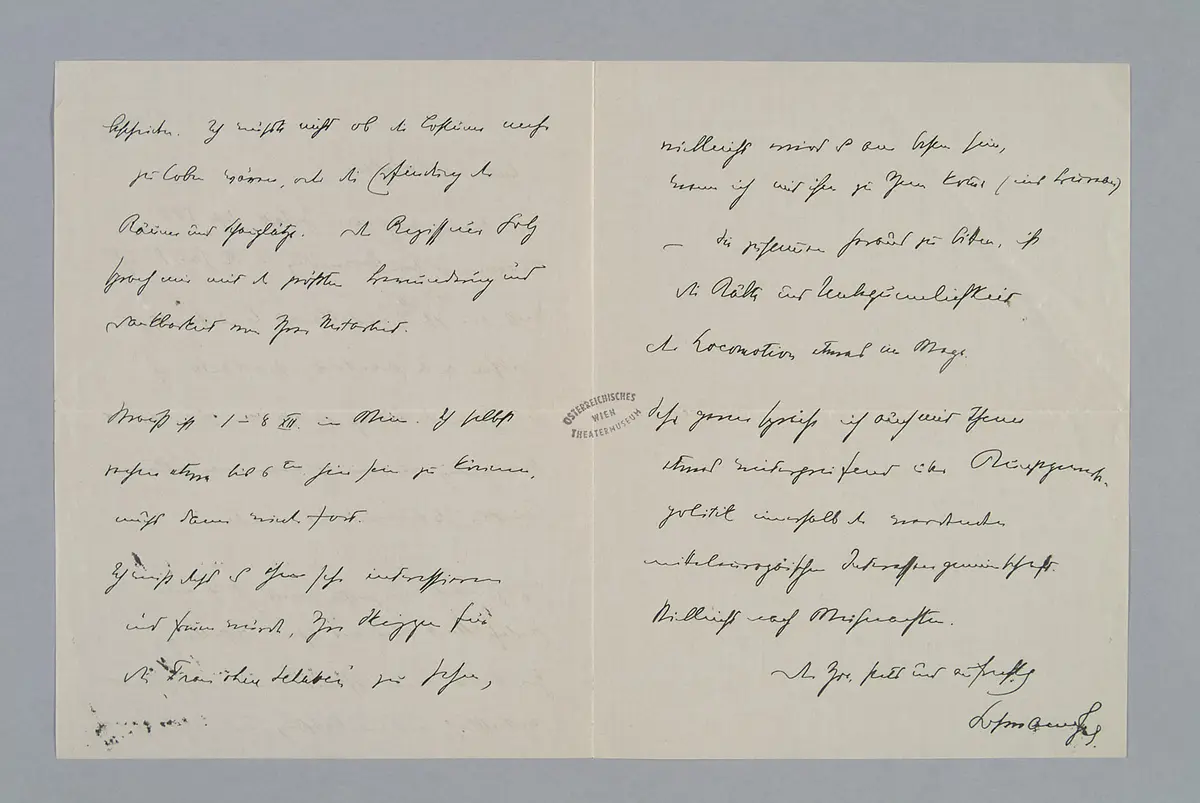 Ich wüsste nicht ob die Costüme mehr
zu loben wären, oder die Erfindung der
Räume und Schauplätze. Der Regisseur
sprach mir mit der größten Bewunderung und
Dankbarkeit von Ihrer Mitarbeit.
ist 1 – 8 XII. in Wien. Ich selbst
etwa bis 6ten hier sein zu können,
muss dann wieder fort.
Ich weiß dass es ihn sehr interessieren
und freuen würde, Ihre Skizzen für
die "Frau ohne Schatten" zu sehen,
vielleicht wird es am besten sein,
wenn ich mit ihm zu Ihnen komme
– Sie zu herauf zu bitten, ist
die Kälte und Unbequemlichkeit
der Locomotion etwas im Wege.
Sehr gerne spräche ich auch mit Ihnen
etwas über Kunstgewerbe-
politik innerhalb der werdenden
mitteleuropäischen Interessengemeinschaft.
Vielleicht nach Weihnachten.
Der Ihre, stets und aufrichtig
Hofmannsthal.
ÖSTERREICHISCHES
WIEN
THEATERMUSEUM